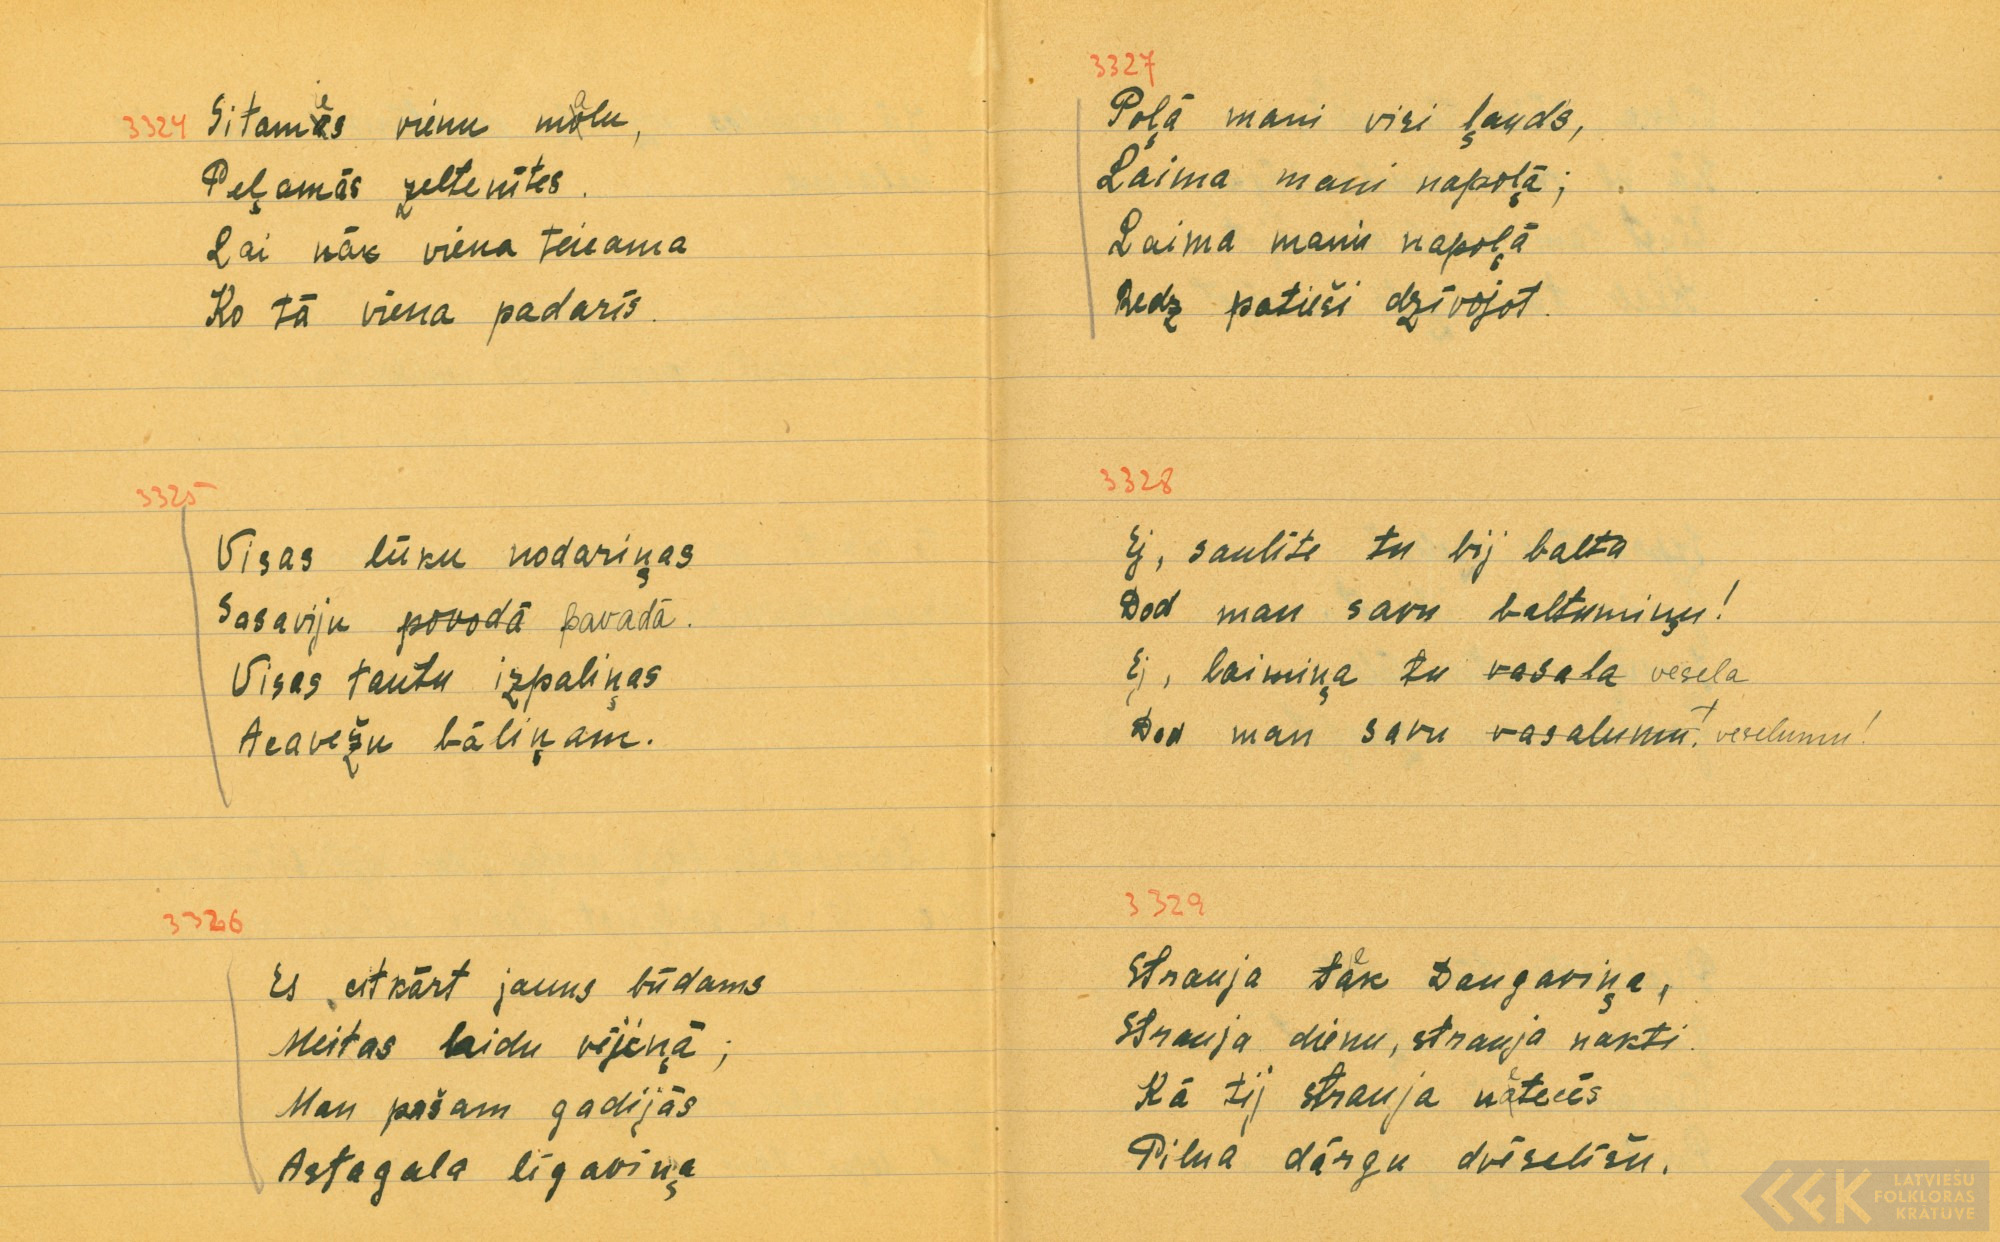 3324
Sitamēs vienu malu,
Peļamās zeltenītes.
Lai nāk viena teicama
Ko tā viena padarīs.
3325
Visas lūku nodariņas
Sasaviju povodā pavadā.
Visas tautu izpaliņas
Acavežu bāliņam.
3326
Es citkārt jauns būdams
Meitas laidu vējiņā;
Man pašam gadijās
Astagala līgaviņa
3327
Poļā mani visi ļauds,
Laima mani napoļā;
Laima mani napoļā
Redz patieši dzīvojot.
3328
Ej, saulīte tu bij balta
Dod man savu baltumiņu!
Ej, laimiņa tu vasala vesela
Dod man savu vasalumu! veselumu!
3329
Strauja tek Daugaviņa,
Strauja dienu, strauja nakti.
Kā tij strauja netecēs
Pilna dārgu dvēselīšu.
LATVIEŠU
FOLKLORAS
KRĀTUVE